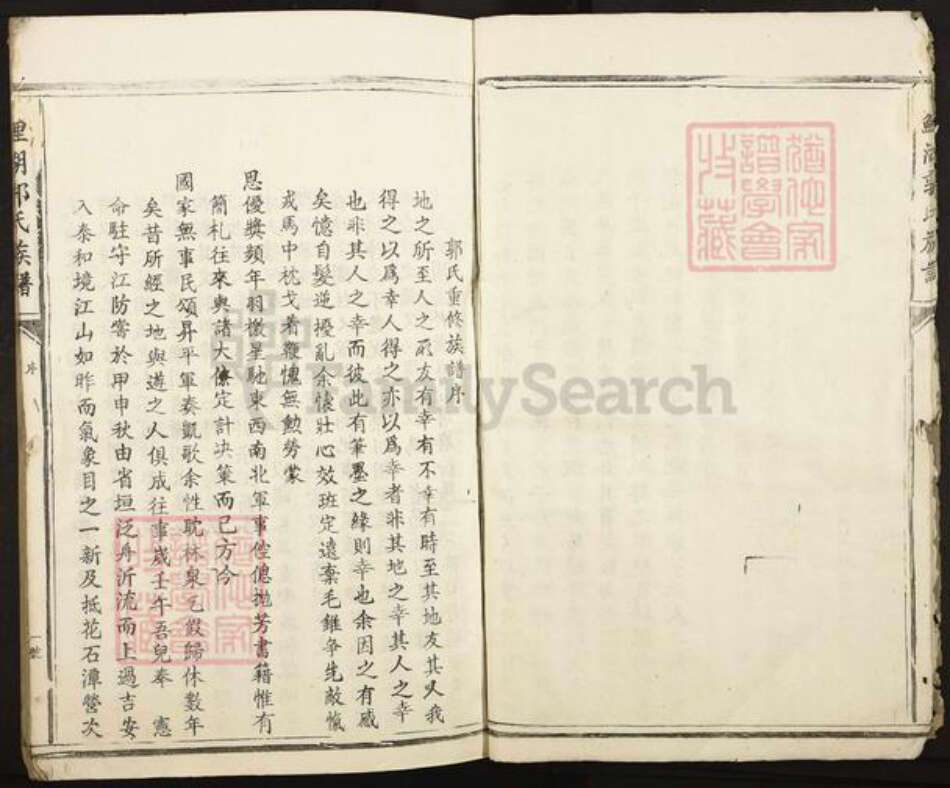 郭氏重修族譜序
地之所至人之所友有幸有不幸有時至其地友其人我
得之以爲幸人得之亦以爲幸者非其地之幸其人之幸
也非其人之幸而彼此有筆墨之緣則幸也余因之有感
矣憶自髮逆擾亂余懷壯心效班定遠棄毛錐爭先敵愾
戎馬中枕戈著鞭愧無勲勞蒙
恩優奬頻年羽檄星馳東西南北軍事倥傯拋芳書籍惟有
簡札往來與諸大僚定計決策而已方今
國家無事民頌昇平軍奏凱歌余性耽林泉乞假歸休數年
矣昔所經之地與遊之人俱成往事歲壬午吾兒奉 憲
命駐守江防害於甲申秋由省垣泛舟沂流而上過吉安
入泰和境江山如昨而氣象目之一新及抵花石潭營次
氏族譜
序
一號
猶他家
譜學會
收藏
猶他家
譜學會
收藏
FamilySearch